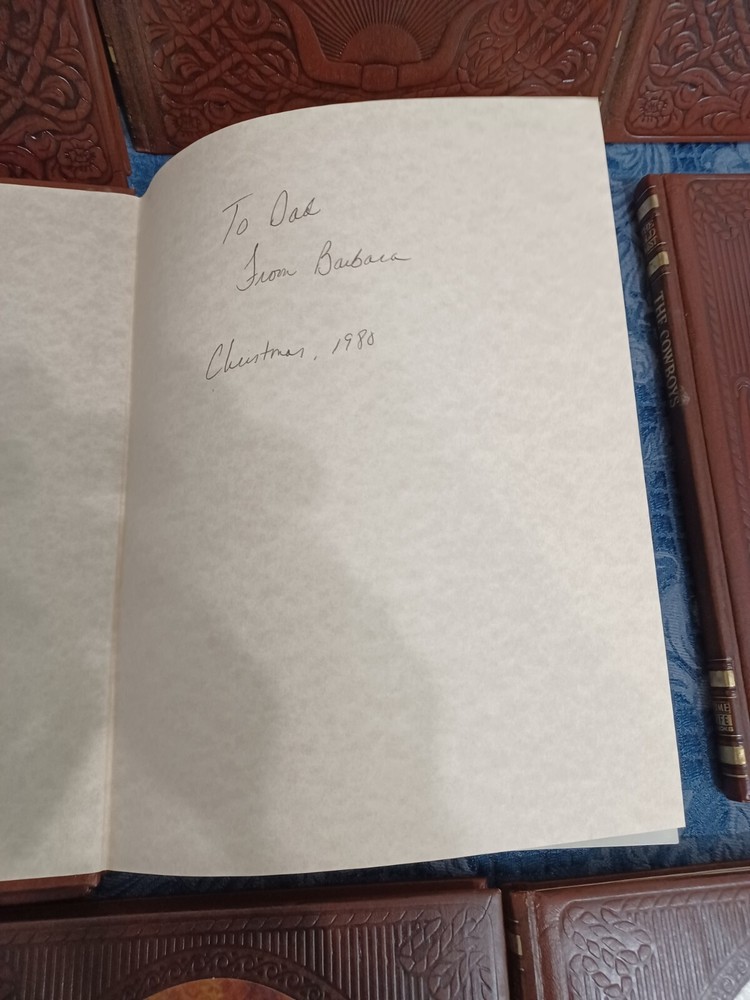 To Dad
From Barbara
Christmas, 1980
THE COWBOYS